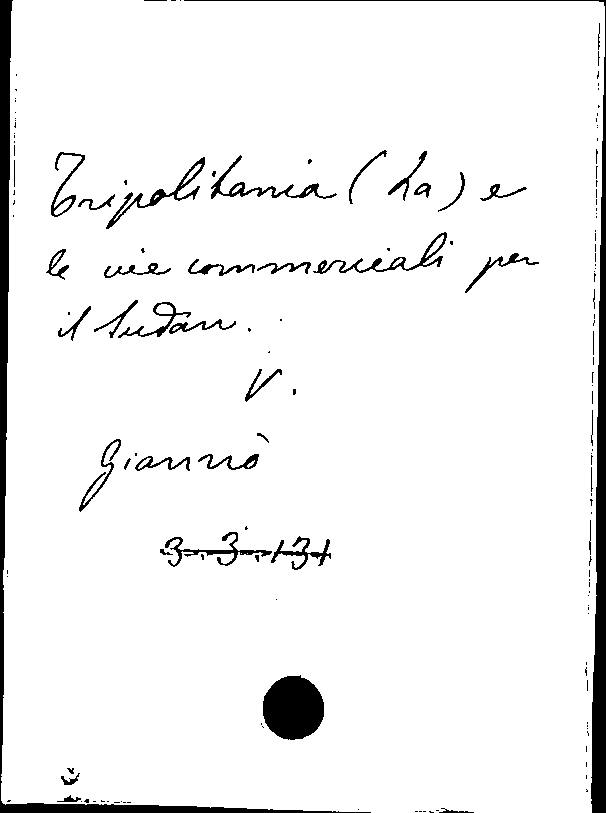 Tripolitania (La) e
le vie commerciali per
il Sudan.
V.
Giannò
3.3.131